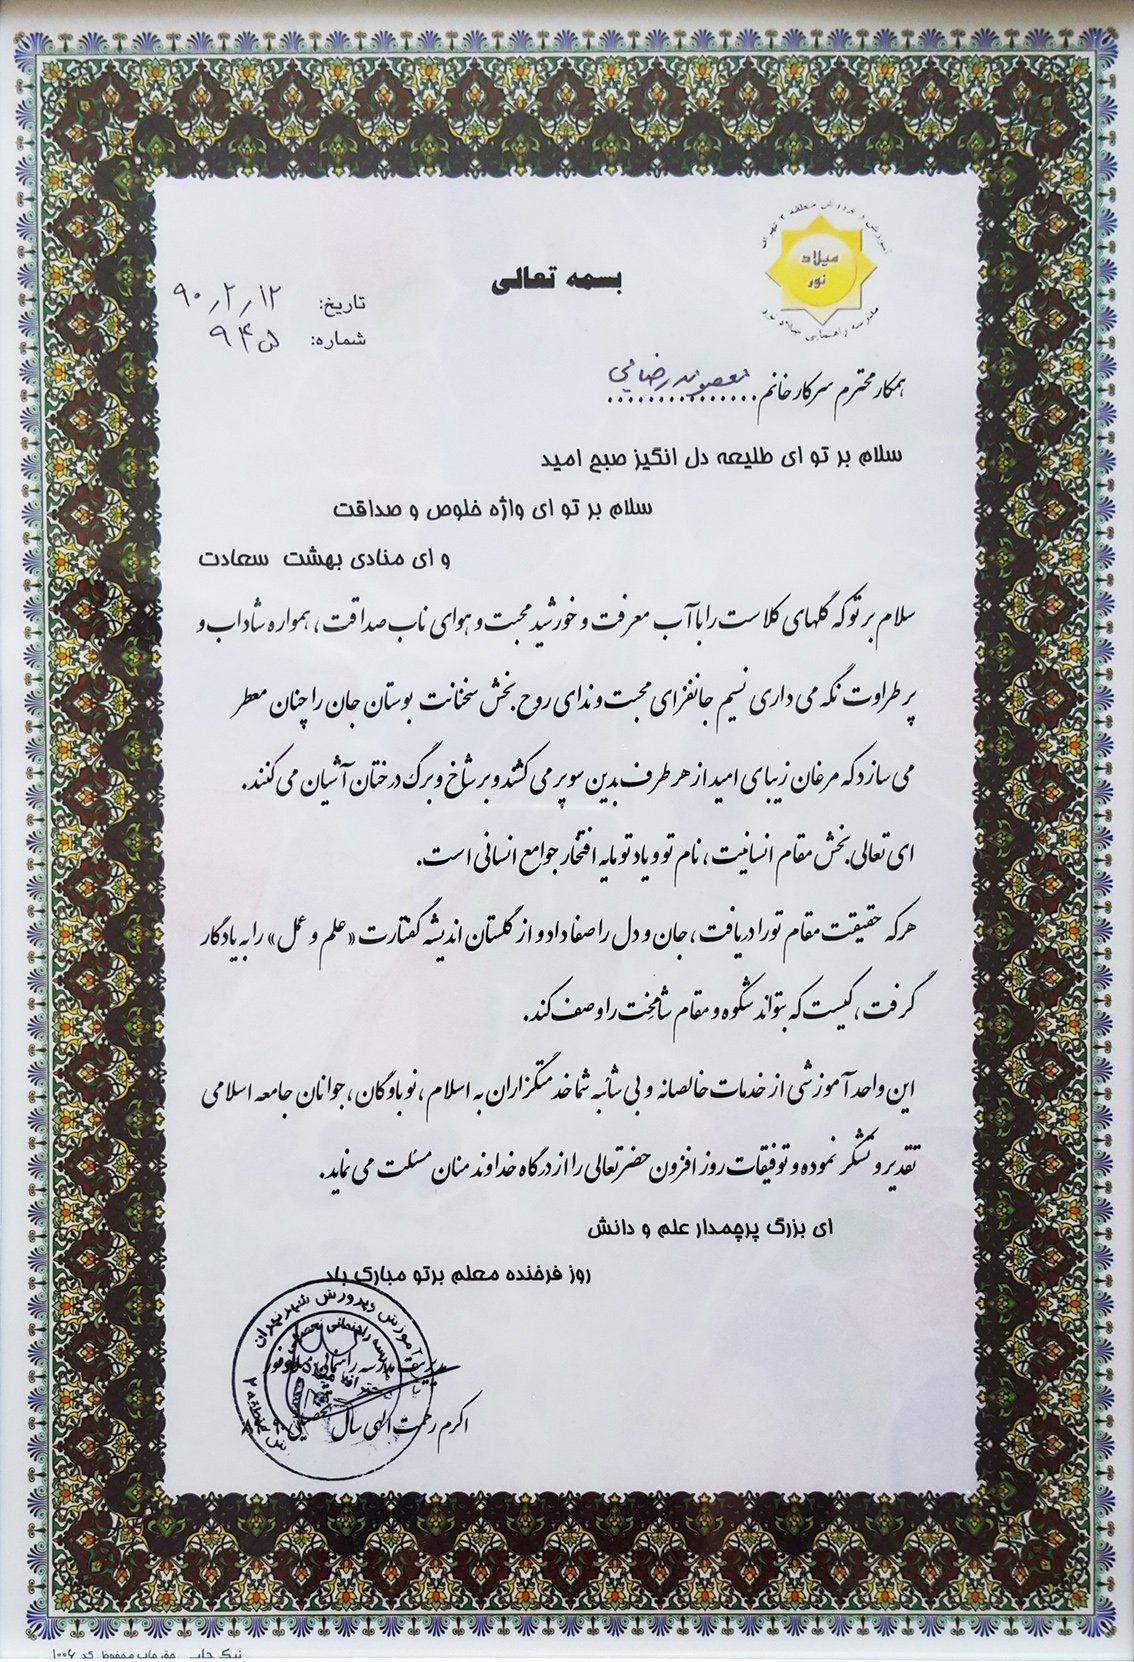 آموزش و پرورش منطقه ۲ تهران
میلاد
نور
مدرسه راهنمایی میلاد نور
بسمه تعالی
تاریخ: ۹۰/۲/۱۲
شماره: ۹۴
همکار محترم سرکار خانم معصومه رضایی
سلام بر تو ای طلیعه دل انگیز صبح امید
سلام بر تو ای واژه خلوص و صداقت
و ای منادی بهشت سعادت
سلام بر تو که گلهای کلاست را با آب معرفت و خورشید محبت و هوای ناب صداقت، همواره شاداب و
پر طراوت نگه می داری نسیم جانفزای محبت و ندای روح بخش سخنانت بوستان جان را چنان معطر
می سازد که مرغان زیبای امید از هر طرف بدین سو پر می کشند و بر شاخ و برگ درختان آشیان می کنند.
ای تعالی بخش مقام انسانیت، نام تو و یاد تو مایه افتخار جوامع انسانی است.
هر که حقیقت مقام تو را دریافت، جان و دل را صفا داد و از گلستان اندیشه گفتارت «علم و عمل» را به یادگار
گرفت، کیست که بتواند شکوه و مقام شامخت را وصف کند.
این واحد آموزشی از خدمات خالصانه و بی شائبه شما خدمتگزاران به اسلام، نوباوگان، جوانان جامعه اسلامی
تقدیر و تشکر نموده و توفیقات روز افزون حضرتعالی را از درگاه خداوند منان مسئلت می نماید.
ای بزرگ پرچمدار علم و دانش
روز فرخنده معلم بر تو مبارک باد
آموزش و پرورش شهر تهران
مدرسه راهنمائی تحصیلی
منطقه ۲
مدیریت مدرسه راهنمائی میلاد نور
اکرم رحمت الهی سال تحصیلی
نیک چاپ حق چاپ محفوظ کد ۱۰۰۶